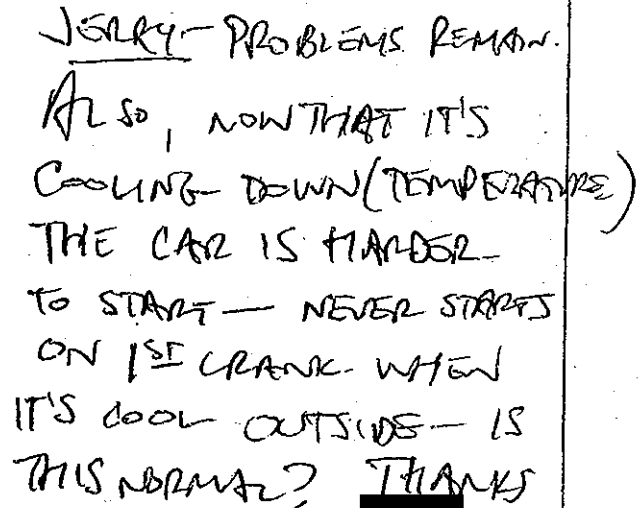 JERRY- PROBLEMS REMAIN.
ALSO, NOW THAT IT'S
COOLING DOWN (TEMPERATURE)
THE CAR IS HARDER
TO START — NEVER STARTS
ON 1ST CRANK WHEN
IT'S COOL OUTSIDE — IS
THIS NORMAL? THANKS